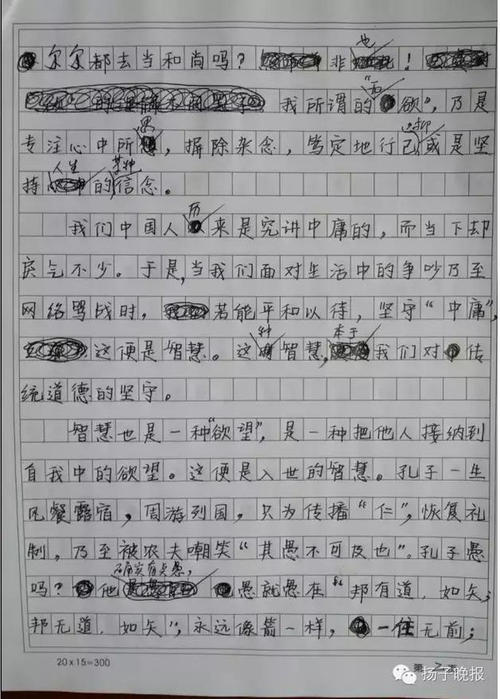 尔尔都去当和尚吗？非也！
我所谓的“无欲”，乃是
专注心中所愚，摒除杂念，笃定地行己，抑或是坚
持人生中的某种信念。
我们中国人历来是究讲中庸的，而当下却
戾气不少。于是，当我们面对生活中的争吵乃至
网络骂战时，若能平和以待，坚守“中庸”，
这便是智慧。这种智慧，本于我们对传
统道德的坚守。
智慧也是一种“欲望”，是一种把他人接纳到
自我中的欲望。这便是入世的智慧。孔子一生
风餐露宿，周游列国，只为传播“仁”，恢复礼
制，乃至被农夫嘲笑“其愚不可及也”。孔子愚
吗？他确实有点愚，愚就愚在“邦有道，如矢；
邦无道，如矢”，永远像箭一样，一往无前；
20×15=300
第2页
扬子晚报